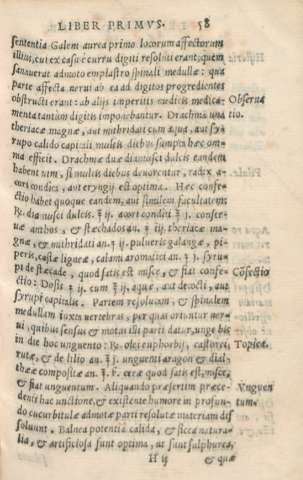 LIBER PRIMVS. 58
sententia Galeni aurea primo locorum affectorum
illini, cui ex casu e curru digiti resoluti erant, quem
sanauerat admoto emplastro spinali medullæ: qua
parte affecta nerui ab ea ad digitos progredientes
obstructi erant: ab alijs imperitis medicis medica-
menta tantùm digitis imponebantur. Drachma una Obserua
theriacæ magnæ, aut mithridati cum aqua, aut sy- tio.
rupo calido capitali multis diebus sumpta hæc om-
nia efficit. Drachmæ duæ dianusci dulcis eandem
habent uim, si multis diebus deuorentur, radix a-
cori condici, aut eryngij est optima. Hæc confe-
ctio habet quoque eandem, aut similem facultatem
℞. dia nusci dulcis. ℥ ij. acori conditi ℥ j. conser-
uæ anthos, & stæchados an. ℥ iij. theriacæ ma-
gnæ, & mithridati an. ℥ ij. pulueris galangæ, pi-
peris, casiæ ligneæ, calami aromatici an. ʒ j. syru-
pi de stæcade, quod satis est misce, & fiat confe- Cõfectio
ctio: Dosis ʒ ij. cum ℥ ij. aquæ, aut decocti, aut
syrupi capitalis. Partem resolutam, & spinalem
medullam iuxta vertebras, per quas oriuntur ner-
ui, quibus sensus & motus illi parti datur, unge bis
in die hoc unguento: ℞. olei euphorbij, castorei, Topica.
rutæ, & de lilio an. ℥ j. unguenti aragon & dial-
theæ compositæ an. ℥. ß. ceræ quod satis est, misce,
& fiat unguentum. Aliquando præsertim præce- Vnguen
denis hac unctione, & existente humore in profun- tum.
do cucurbitulæ admotæ parti resolutæ materiam dis
soluunt. Balnea potentia calida, & sicca natura-
lia, & artificiosa sunt optima, ut sunt sulphurea,
H ij & quæ